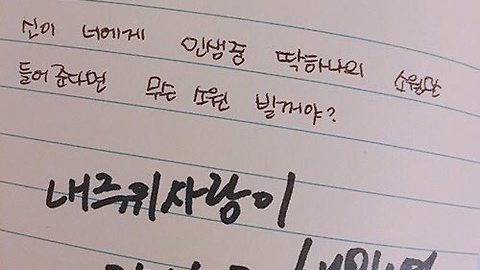 신이 너에게 인생중 딱하나의 소원만
들어준다면 무슨 소원 빌꺼야?
내주위사람이